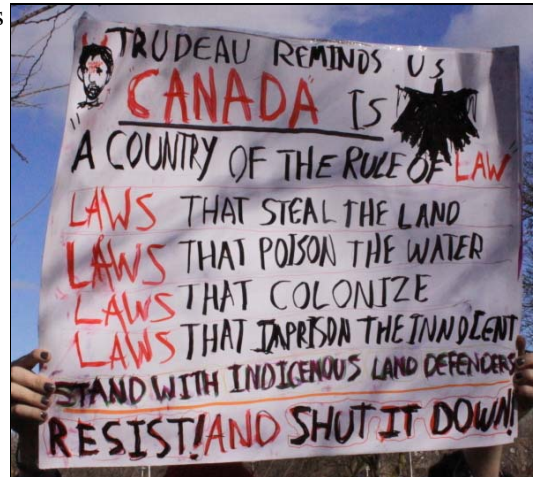 TRUDEAU REMINDS US
"CANADA" IS
A COUNTRY OF THE RULE OF LAW
LAWS THAT STEAL THE LAND
LAWS THAT POISON THE WATER
LAWS THAT COLONIZE
LAWS THAT IMPRISON THE INNOCENT
STAND WITH INDIGENOUS LAND DEFENDERS
RESIST! AND SHUT IT DOWN!